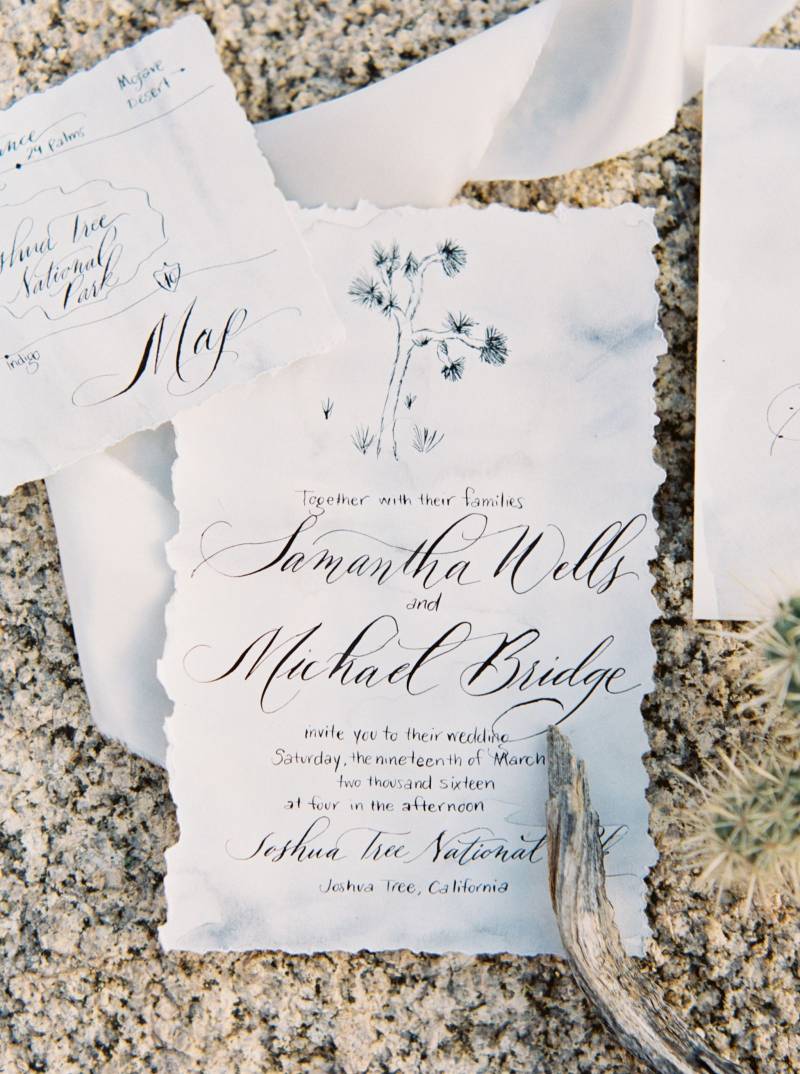 Mojave
Desert
29 Palms
Joshua Tree
National
Park
10
Indigo
Map
Together with their families
Samantha Wells
and
Michael Bridge
invite you to their wedding
Saturday, the nineteenth of March
two thousand sixteen
at four in the afternoon
Joshua Tree National
Joshua Tree, California